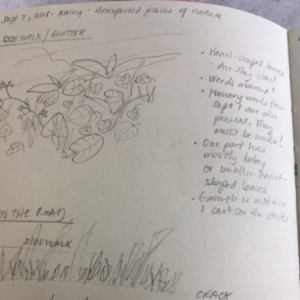 Sept 7, 2018 - Rainy - Unexpected places of nature
SIDEWALK / GUTTER
• Heart-shaped leaves
- Are they
• Weeds abound!
• weeds for
sept 1 are also
present. They
must be weeds!
• One part has
mostly baby
or smaller heart-
shaped leaves
• Growth is
& can't see the stalks
ON THE ROAD
SIDEWALK
CRACK